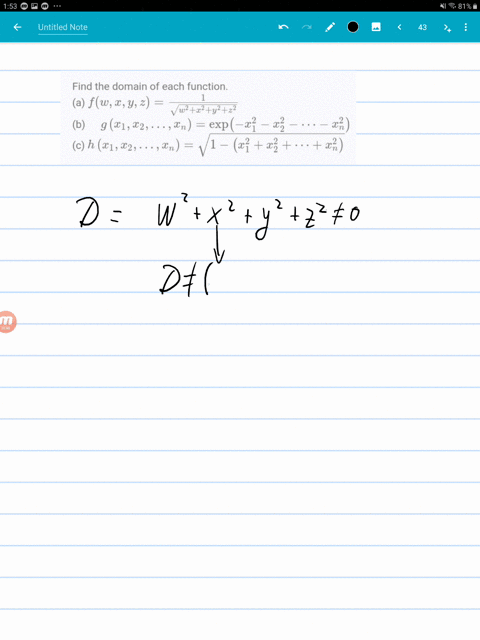 1:53 81%
Untitled Note 43
Find the domain of each function.
(a) f(w, x, y, z) = 1/√(w² + x² + y² + z²)
(b) g(x₁, x₂, . . . , xₙ) = exp(−x₁² − x₂² − ⋯ − xₙ²)
(c) h(x₁, x₂, . . . , xₙ) = √(1 − (x₁² + x₂² + ⋯ + xₙ²))
D = W² + x² + y² + z² ≠ 0
D ≠ (